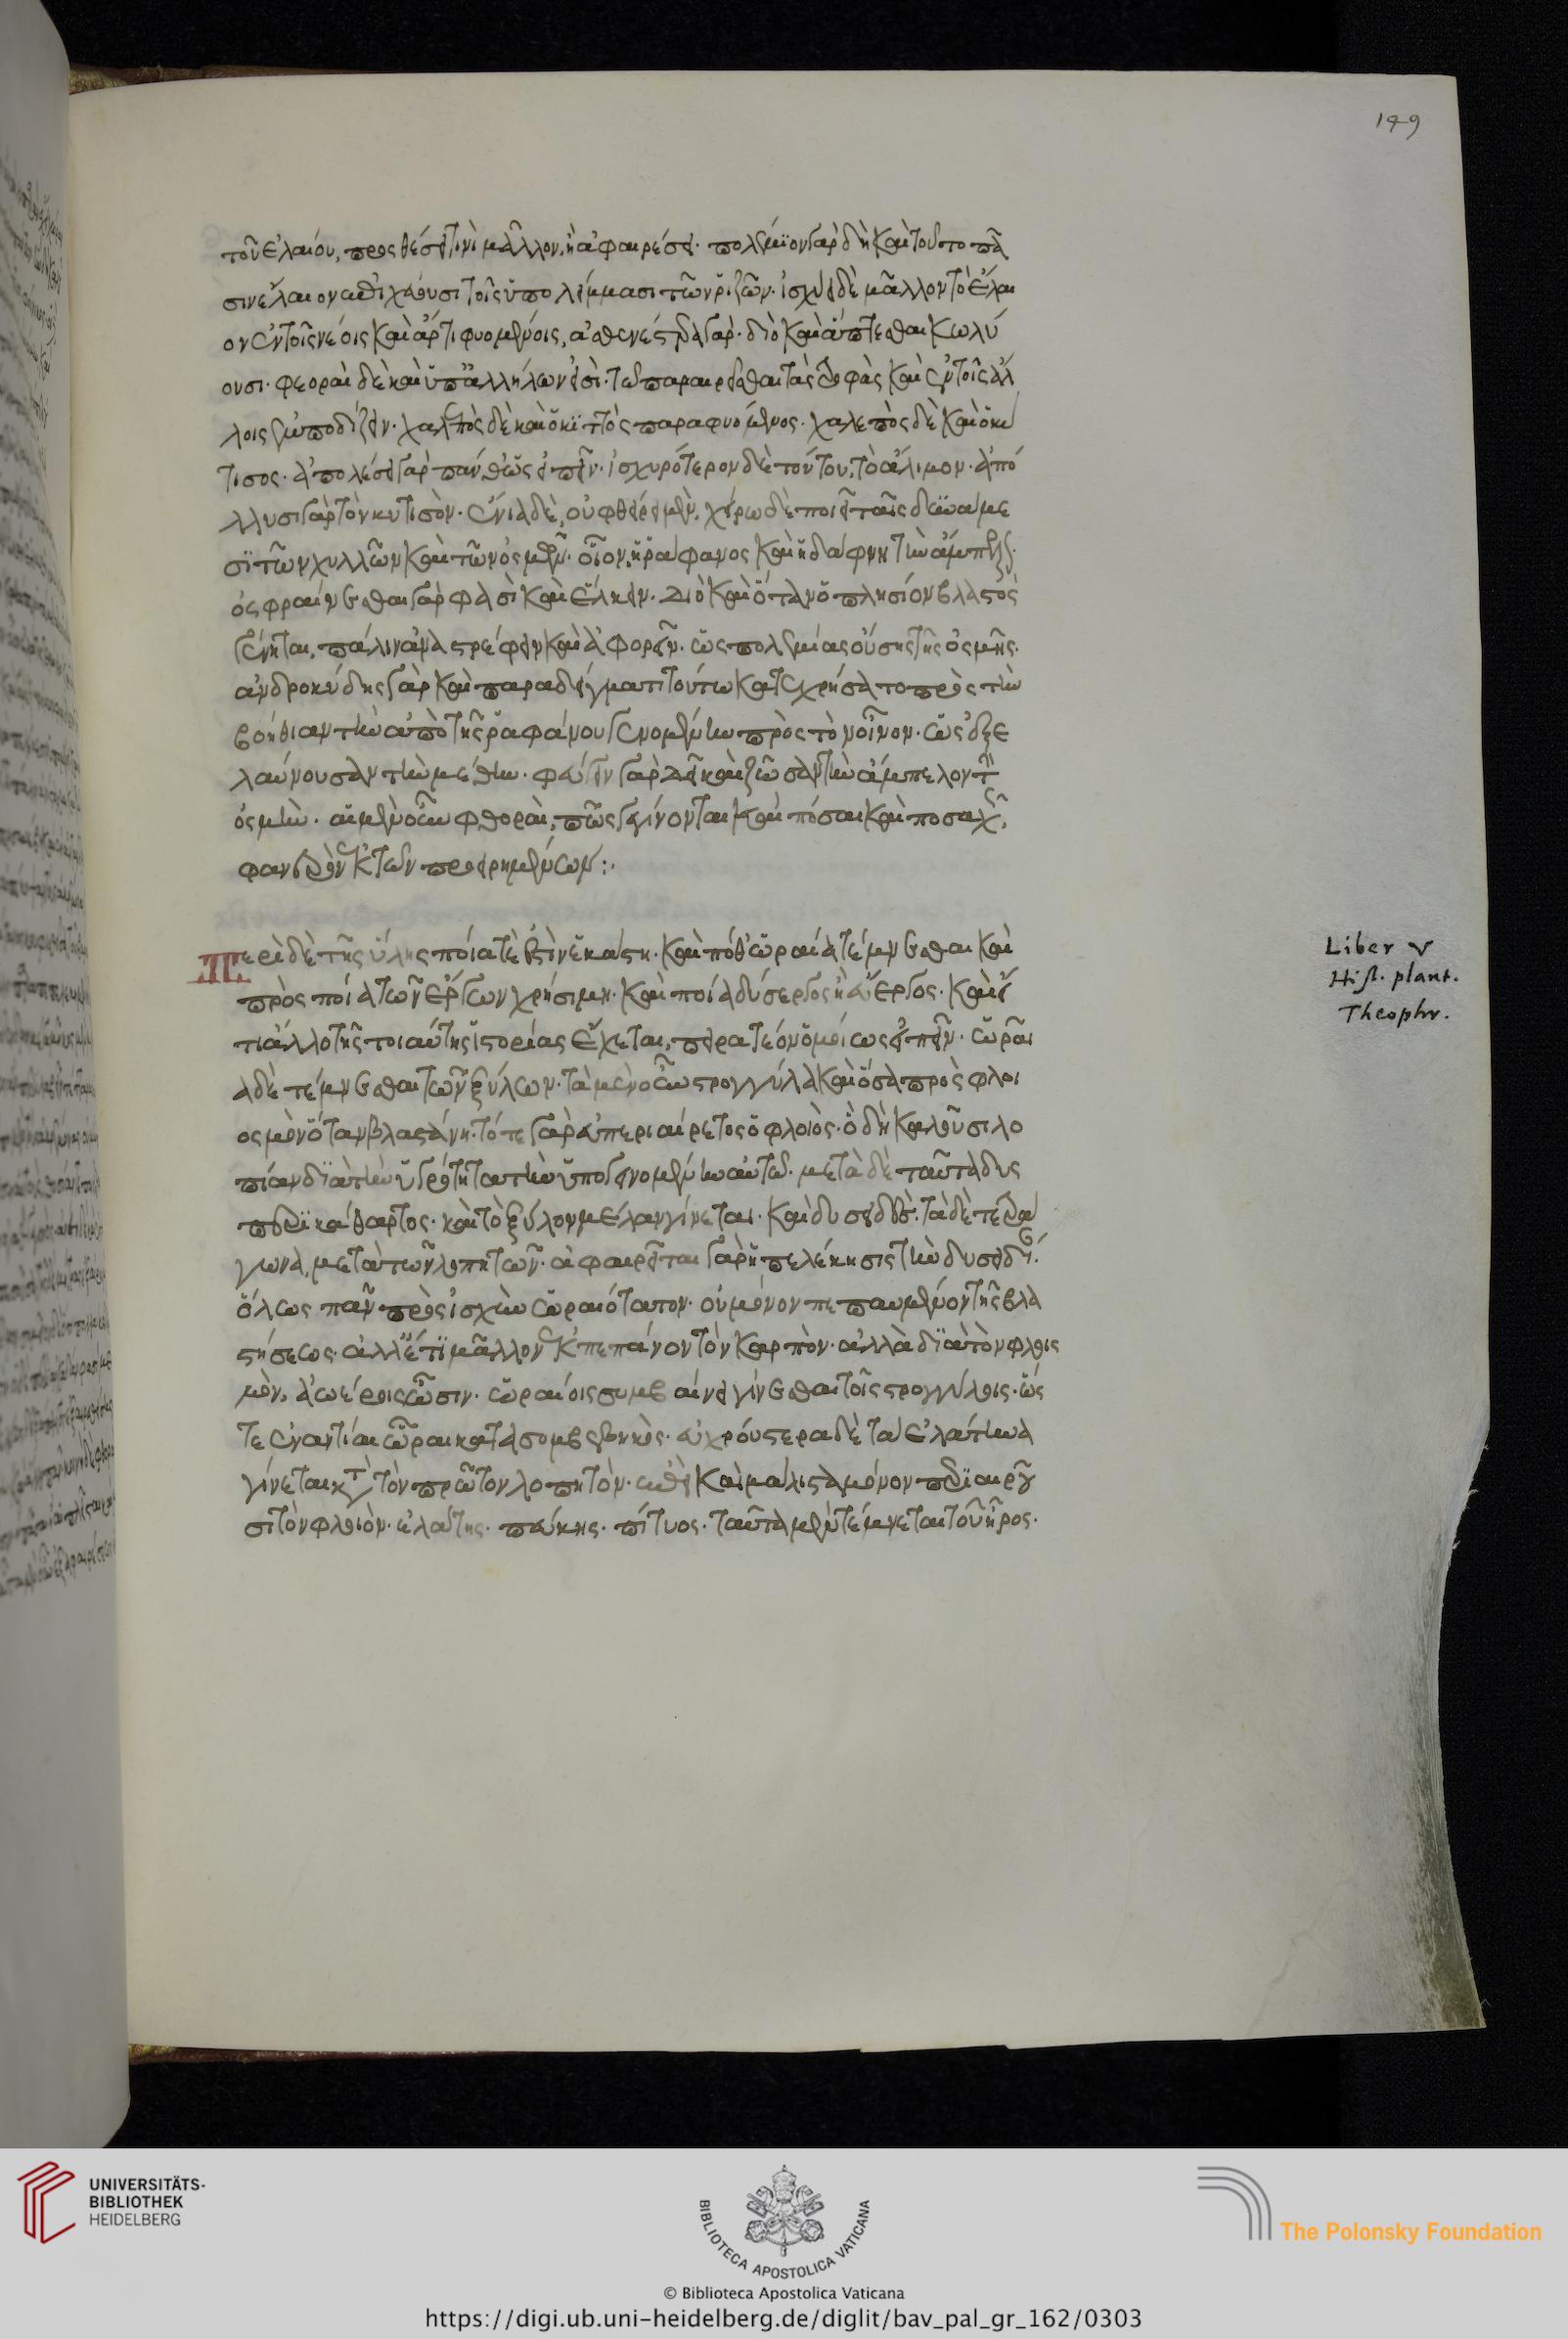 149
τοῦ ἐλαίου, προσθέσει τινὶ μᾶλλον, ἢ ἀφαιρέσει. πολέμϊον γὰρ δὴ καὶ τοῦτο πᾶ
σιν ἔλαιον ἐπιχέουσι τοῖς ὑπολείμμασι τῶν ῥιζῶν. ἰσχύει δὲ μᾶλλον τὸ ἔλαι
ον ἐν τοῖς νέοις καὶ ἄρτι φυομένοις, ἀσθενέστερα γάρ. διὸ καὶ ἅπτεσθαι κωλύ
ουσι. φθοραὶ δὲ καὶ ὑπ' ἀλλήλων εἰσὶ. τῶ παραιρεῖσθαι τὰς τροφὰς καὶ ἐν τοῖς ἄλ
λοις ἐμποδίζειν. χαλεπὸς δὲ καὶ ὁ κϊττὸς παραφυόμενος. χαλεπὸς δὲ καὶ ὁ κύ
τισος. ἀπολέσει γὰρ πάνθ' ὡς εἰπεῖν. ἰσχυρότερον δὲ τούτου, τὸ ἅλιμον. ἀπό
λλυσι γὰρ τὸν κυτισὸν. ἔνια δὲ, οὐ φθείρει μὲν, χείρω δὲ ποιεῖ ταῖς δυνάμε
σϊ τῶν χυλλῶν καὶ τῶν ὀσμῶν. οἷον, ἡ ῥάφανος καὶ ἡ δάφνη τὴν ἄμπελον.
ὀσφραίνεσθαι γάρ φασὶ καὶ ἕλκειν. διὸ καὶ ὅταν ὁ πλησίον βλαστὸς
γένηται, πάλιν ἀναστρέφειν καὶ ἀφορεῖν. ὡς πολεμίας οὔσης τῆς ὀσμῆς.
ἀνδροκύδης γὰρ καὶ παραδείγματι τούτω κατεχρήσατο πρὸς τὴν
βοήθιαν τὴν ἀπὸ τῆς ῥαφάνου γενομένην πρὸς τὸν οἶνον. ὡς ἐξε
λαύνουσαν τὴν μέθην. φεύγειν γὰρ δεῖ καὶ ζῶσαν τὴν ἄμπελον τὴν
ὀσμὴν. αἱ μὲν οὖν φθοραὶ, πῶς γίνονται καὶ πόσαι καὶ ποσαχῶς,
φανερὸν ἐκ τῶν προειρημένων:.
Περὶ δὲ τῆς ὕλης ποία τὲ ἐστὶν ἑκάστη. καὶ πόθ' ὡραία τέμνεσθαι καὶ
πρὸς ποῖα τῶν ἔργων χρήσιμη. καὶ ποία δύσεργος ἢ εὔεργος. καὶ εἴ
τι ἄλλο τῆς τοιαύτης ἱστορίας ἔχεται, πειρατέον ὁμοίως εἰπεῖν. ὡραῖ
α δὲ τέμνεσθαι τῶν ξύλων. τὰ μὲν οὖν στρογγύλα καὶ ὅσα πρὸς φλοι
ὸσμὸν ὅταν βλαστάνη. τότε γὰρ εὐπεριαίρετος ὁ φλοιὸς. ὃ δὴ καλοῦσι λο
πᾶν διὰ τὴν ὑγρότητα τὴν ὑπογενομένην αὐτῶ. μετὰ δὲ ταῦτα δυς
περϊκάθαρτος. καὶ τὸ ξύλον μέλαν γίνεται. καὶ δυσειδὲς. τὰ δὲ τετρά
γωνα, μετὰ τῶν λοπητῶν. ἀφαιρεῖται γὰρ ἡ πελέκησις τὴν δυσείδειαν.
ὅλως πᾶν πρὸς ἰσχὺν ὡραιότατον. οὐ μόνον πεπαυμένον τῆς βλα
στήσεως. ἀλλ' ἔτϊ μᾶλλον ἐκπεπάνον τὸν καρπὸν. ἀλλὰ διὰ τὸν φλοισ
μὸν, ἀώροις οὖσιν. ὡραίοις συμβαίνει γίνεσθαι τοῖς στρογγύλοις. ὥς
τε ἐναντίαι ὧραι κατὰ συμβεβηκὸς. εὐχρούστερα δὲ τὰ ἐλάτινα
γίνεται κατὰ τὸν πρῶτον λοπητὸν. ἐπεὶ καὶ μάλιστα μόνον περϊαιροῦ
σι τὸν φλοιὸν. ἐλάτης. πεύκης. πίτυος. ταῦτα μὲν τέμνεται τοῦ ἦρος.
Liber V
Hist. plant.
Theophr.
UNIVERSITÄTS-
BIBLIOTHEK
HEIDELBERG
BIBLIOTECA APOSTOLICA VATICANA
The Polonsky Foundation
© Biblioteca Apostolica Vaticana
https://digi.ub.uni-heidelberg.de/diglit/bav_pal_gr_162/0303